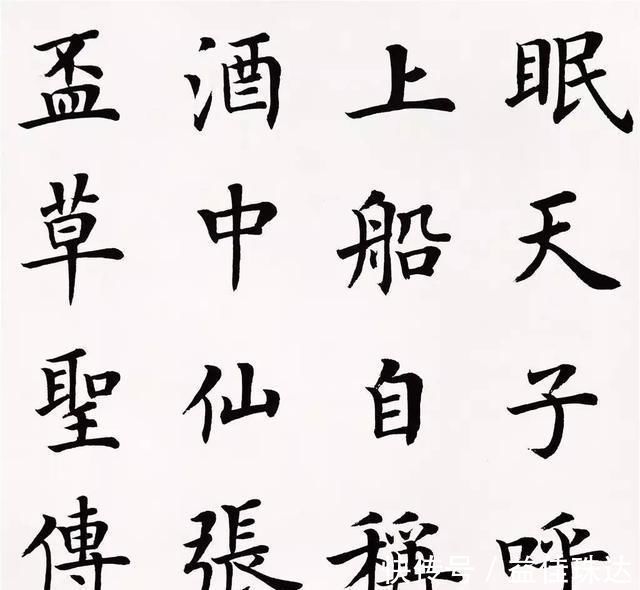 眠天子呼
上船自稱
酒中仙張
盃草聖傳
快传号 / 益佳珠达